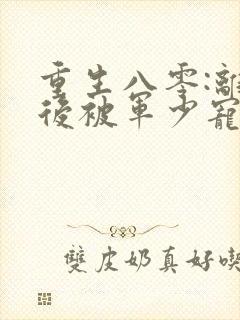 重生八零:離
後被軍少寵
雙皮奶真好喫